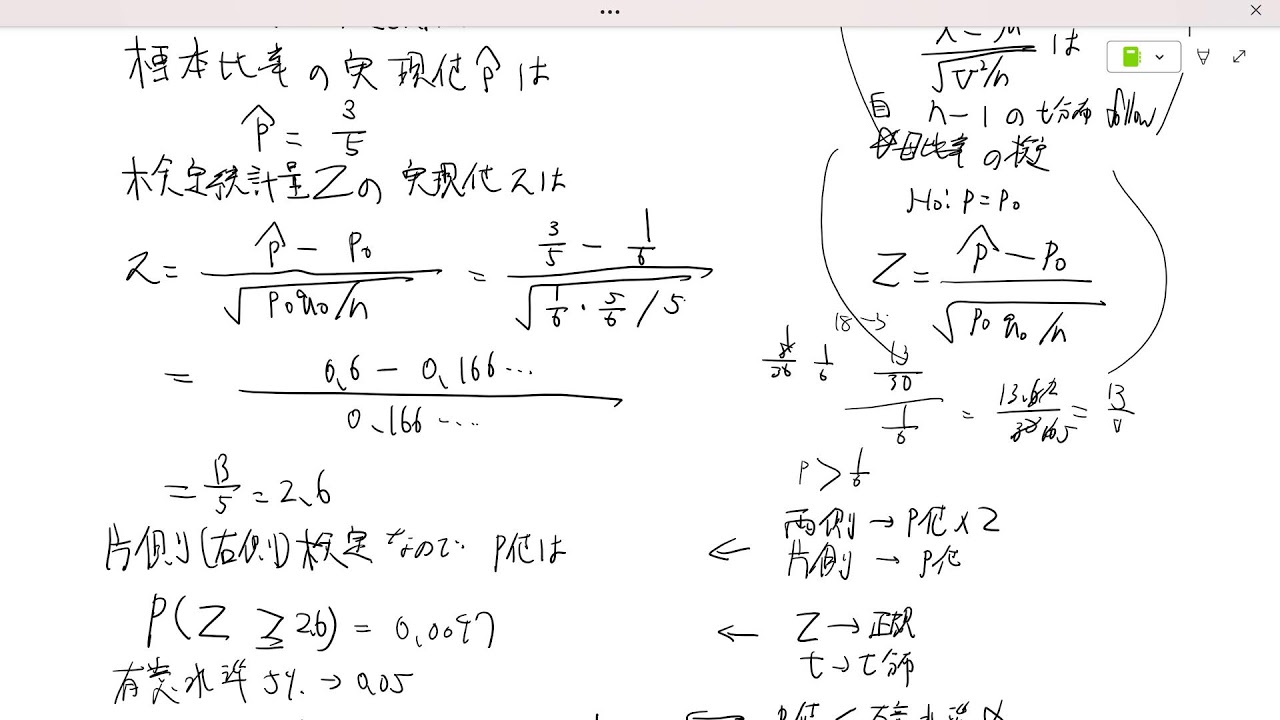 標本比率の実現値p̂は
p̂ = 3/5
検定統計量Zの実現値zは
z = (p̂ − p₀)/√(p₀q₀/n) = (3/5 − 1/6)/√(1/6・5/6/5)
= (0.6 − 0.166…)/(0.166…)
= 13/5 = 2.6
片側(右側)検定なので P値は
P(Z ≧ 2.6) = 0.0047
有意水準5% → 0.05
√(U²/n) は
n−1のt分布 follow
母比率の検定
H₀: p = p₀
Z = (p̂ − p₀)/√(p₀q₀/n)
18−5
1/6
13/30
1/6
p > 1/6
両側 → P値×2
← 片側 → P値
← Z → 正規
t → t分布